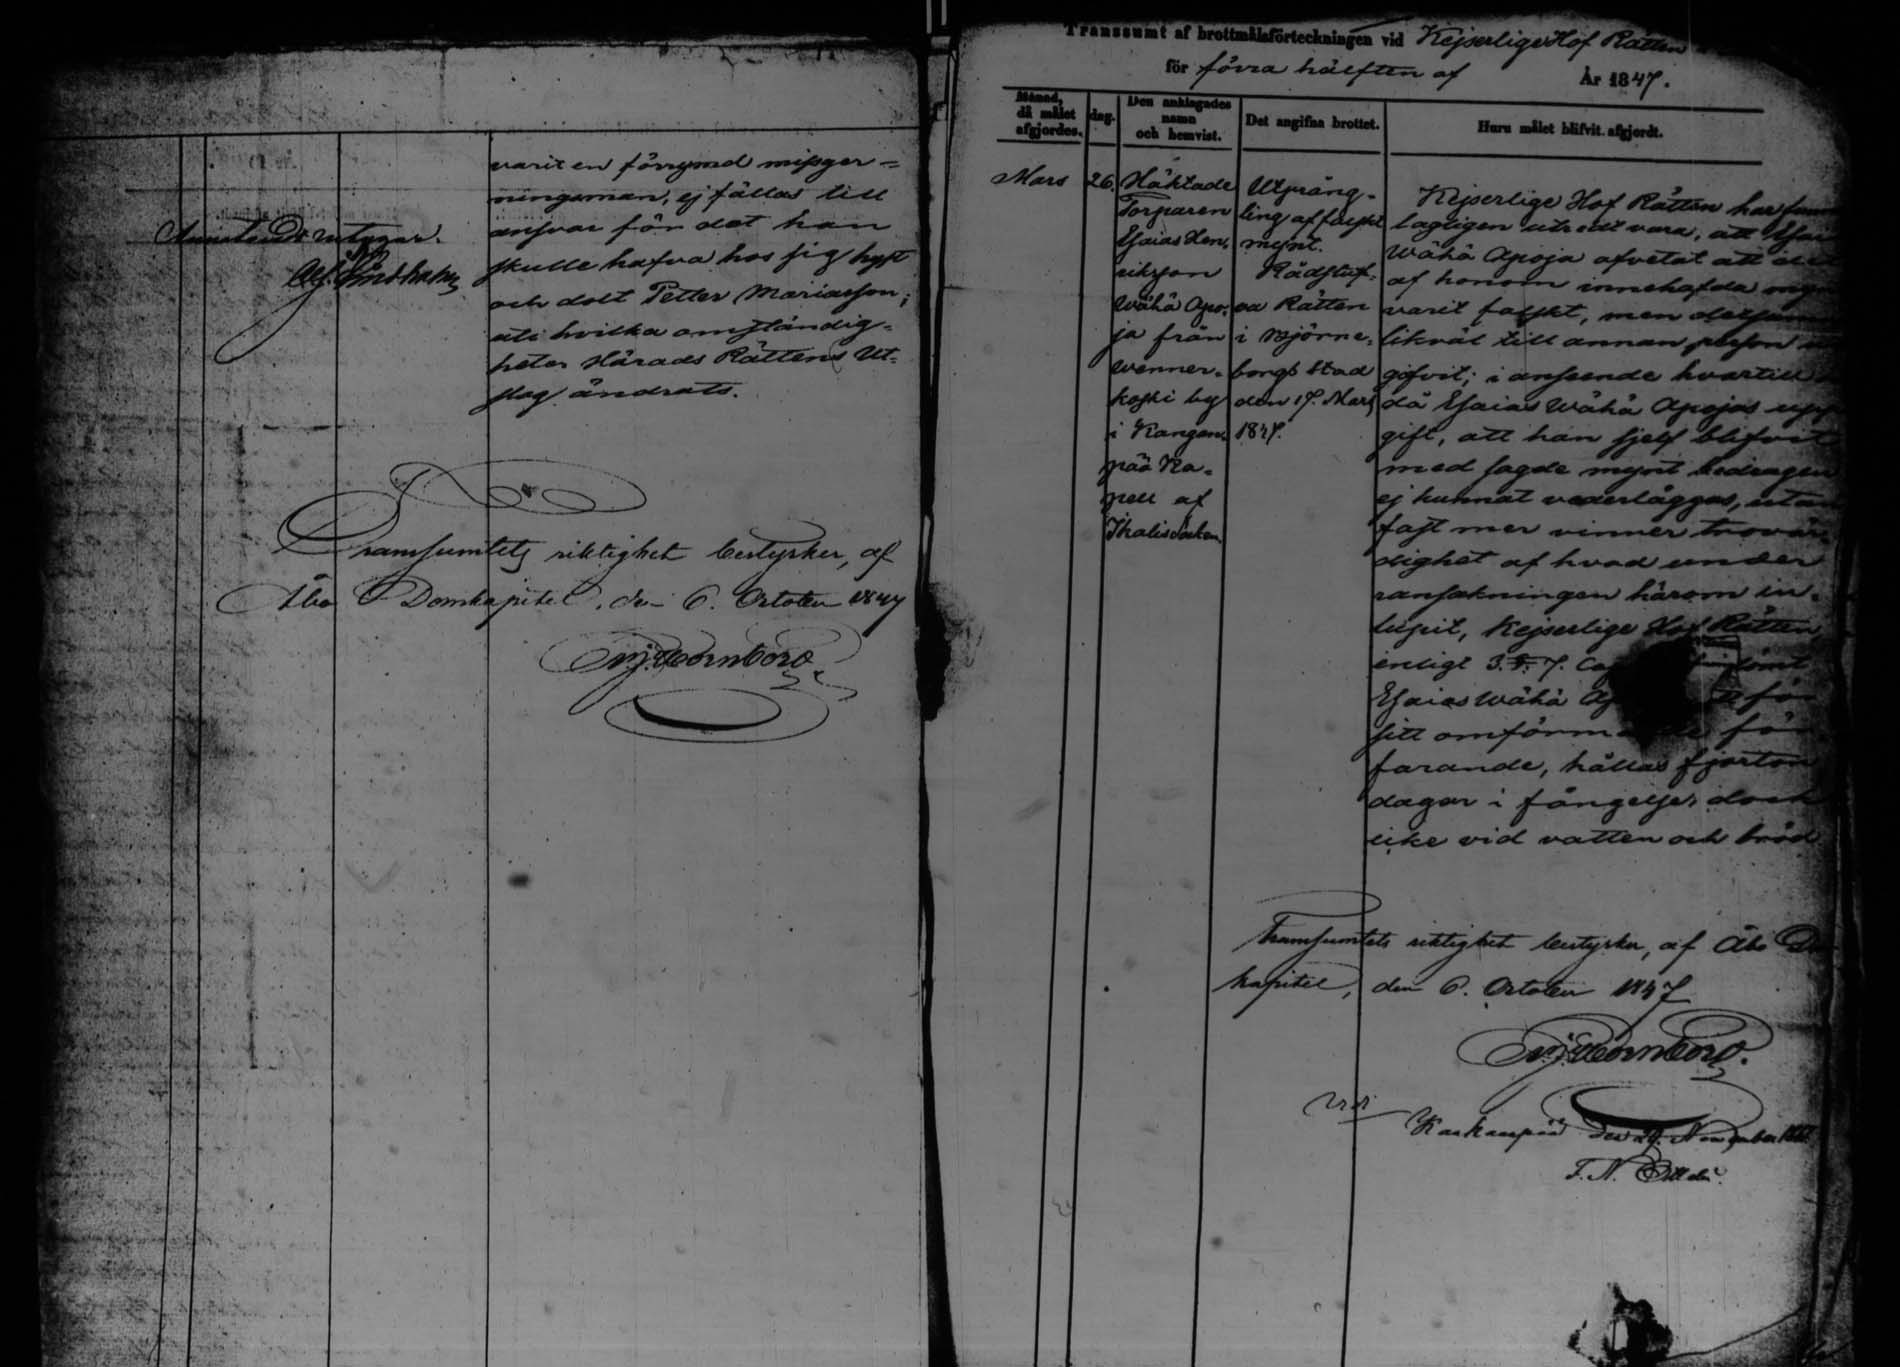 varit en förrymd missger-
ningsman, ej fällas till
ansvar för det han
skulle hafva hos sig hyst
och dolt Petter Mariasson;
uti hvilka omständig-
heter Härads Rättens Ut-
slag ändrats.
Transsumtets riktighet bestyrker, af
Åbo Domkapitel, den 6. October 1847
Transsumt af brottmålsförteckningen vid Kejserlige Hof Rätten
för förra hälften af År 1847.
Månad, då målet afgjordes.
dag.
Den anklagades namn och hemvist.
Det angifna brottet.
Huru målet blifvit afgjordt.
Mars
26.
Häktade
Torparen
Esaias Hen-
riksson
Wähä Apo-
ja från
Wenner-
koski by
i Kangan-
pää Ka-
pell af
Ikalis Socken
Utpräng-
ling af falskt
mynt.
Rådstuf-
va Rätten
i Björne-
borgs Stad
den 17. Mars
1847.
Kejserlige Hof Rätten har
lagligen utredt vara, att
Wähä Apoja afvetat att
af honom innehafda
varit falskt, men
likväl till annan person
gifvit; i anseende hvartill
då Esaias Wähä Apojas upp-
gift, att han sjelf blifvit
med sagde mynt bedragen
ej kunnat vederläggas, utan
fast mer vinner trovär-
dighet af hvad under
ransakningen härom in-
lupit, Kejserlige Hof Rätten
enligt 3. §. 7. Cap
Esaias Wähä för
sitt för-
farande, hållas fjorton
dagar i fängelse, dock
icke vid vatten och bröd
Transsumtets riktighet bestyrker, af Åbo
kapitel, den 6. October 1847
Kankanpää den November
F. N.